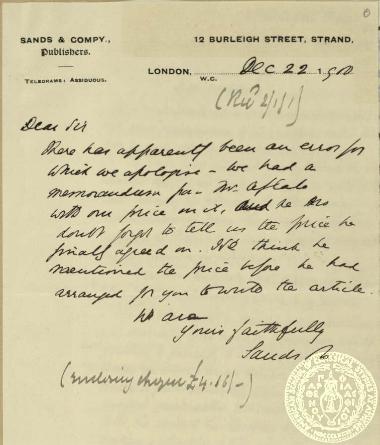 SANDS & COMPY.,
Publishers.
TELEGRAMS: ASSIDUOUS.
12 BURLEIGH STREET, STRAND,
LONDON, W.C. Dec 22 1900
(Recd 2/1/1)
Dear Sir
There has apparently been an error for
which we apologise - we had a
memorandum from Mr. Aflalo
with one price on it, and he no
doubt forgot to tell us the price he
finally agreed on. We think he
mentioned the price before he had
arranged for you to write the article.
We are
Yours faithfully
Sands &
(enclosing cheque £4.16/-)